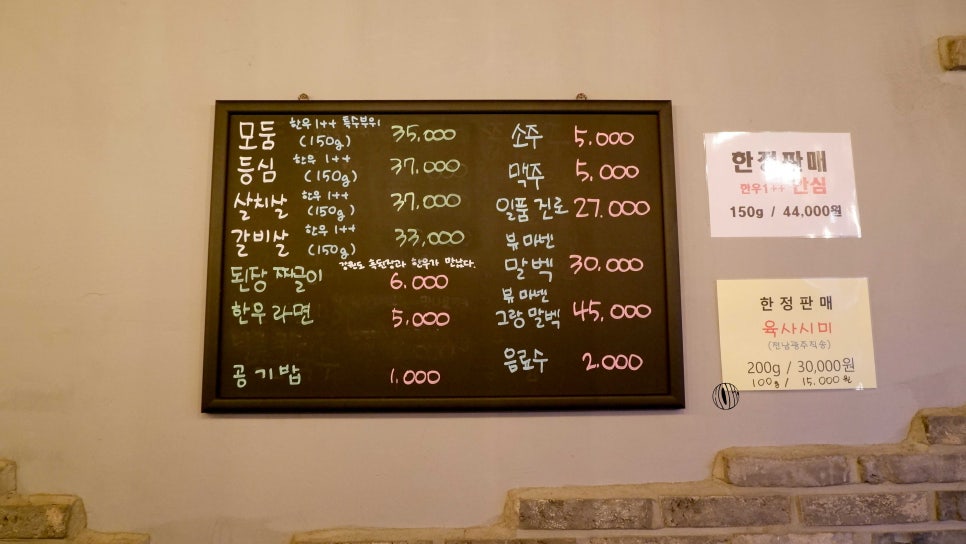 모둠 한우 1++ 특수부위 (150g) 35.000
등심 한우 1++ (150g) 37.000
살치살 한우 1++ (150g) 37.000
갈비살 한우 1++ (150g) 33,000
강원도 토된장과 한우가 만났다.
된장 짜글이 6.000
한우라면 5,000
공기밥 1.000
소주 5.000
맥주 5,000
일품진로 27.000
뷰마넨
말벡 30.000
뷰마넨
그랑말벡 45,000
음료수 2.000
한정판매
한우1++ 안심
150g / 44,000원
한정판매
육사시미
(전남광주직송)
200g / 30,000원
100g / 15.000원